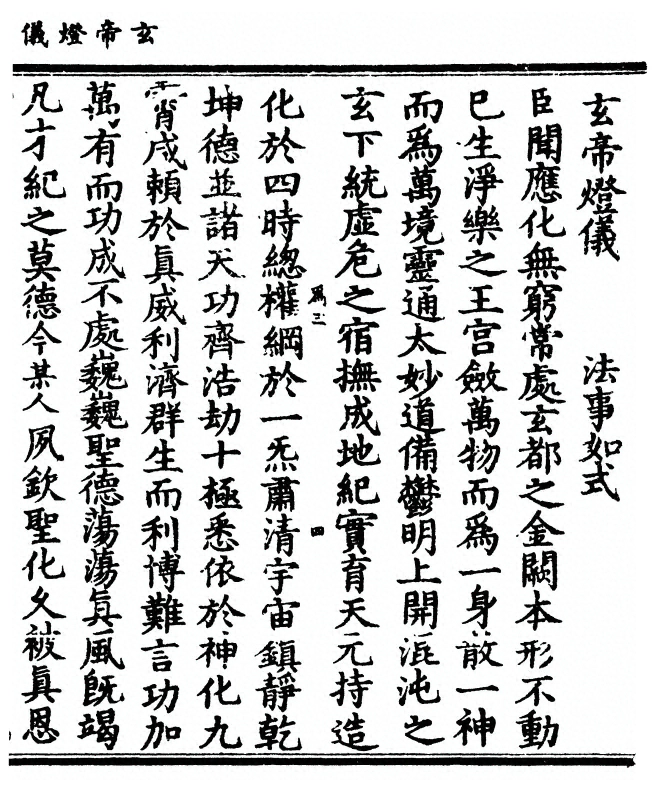 玄帝燈儀
玄帝燈儀 法事如式
臣聞應化無窮常處玄都之金闕本形不動
已生淨樂之王宮斂萬物而爲一身散一神
而爲萬境靈通太妙道備鬱明上開混沌之
玄下統虛危之宿撫成地紀實育天元持造
化於四時緫權綱於一炁肅清宇宙鎮靜乾
爲三 四
坤德並諸天功齊浩劫十極悉依於神化九
霄咸賴於眞威利濟群生而利博難言功加
萬有而功成不處巍巍聖德蕩蕩眞風旣竭
凡才紀之莫德今某人夙欽聖化久被眞恩